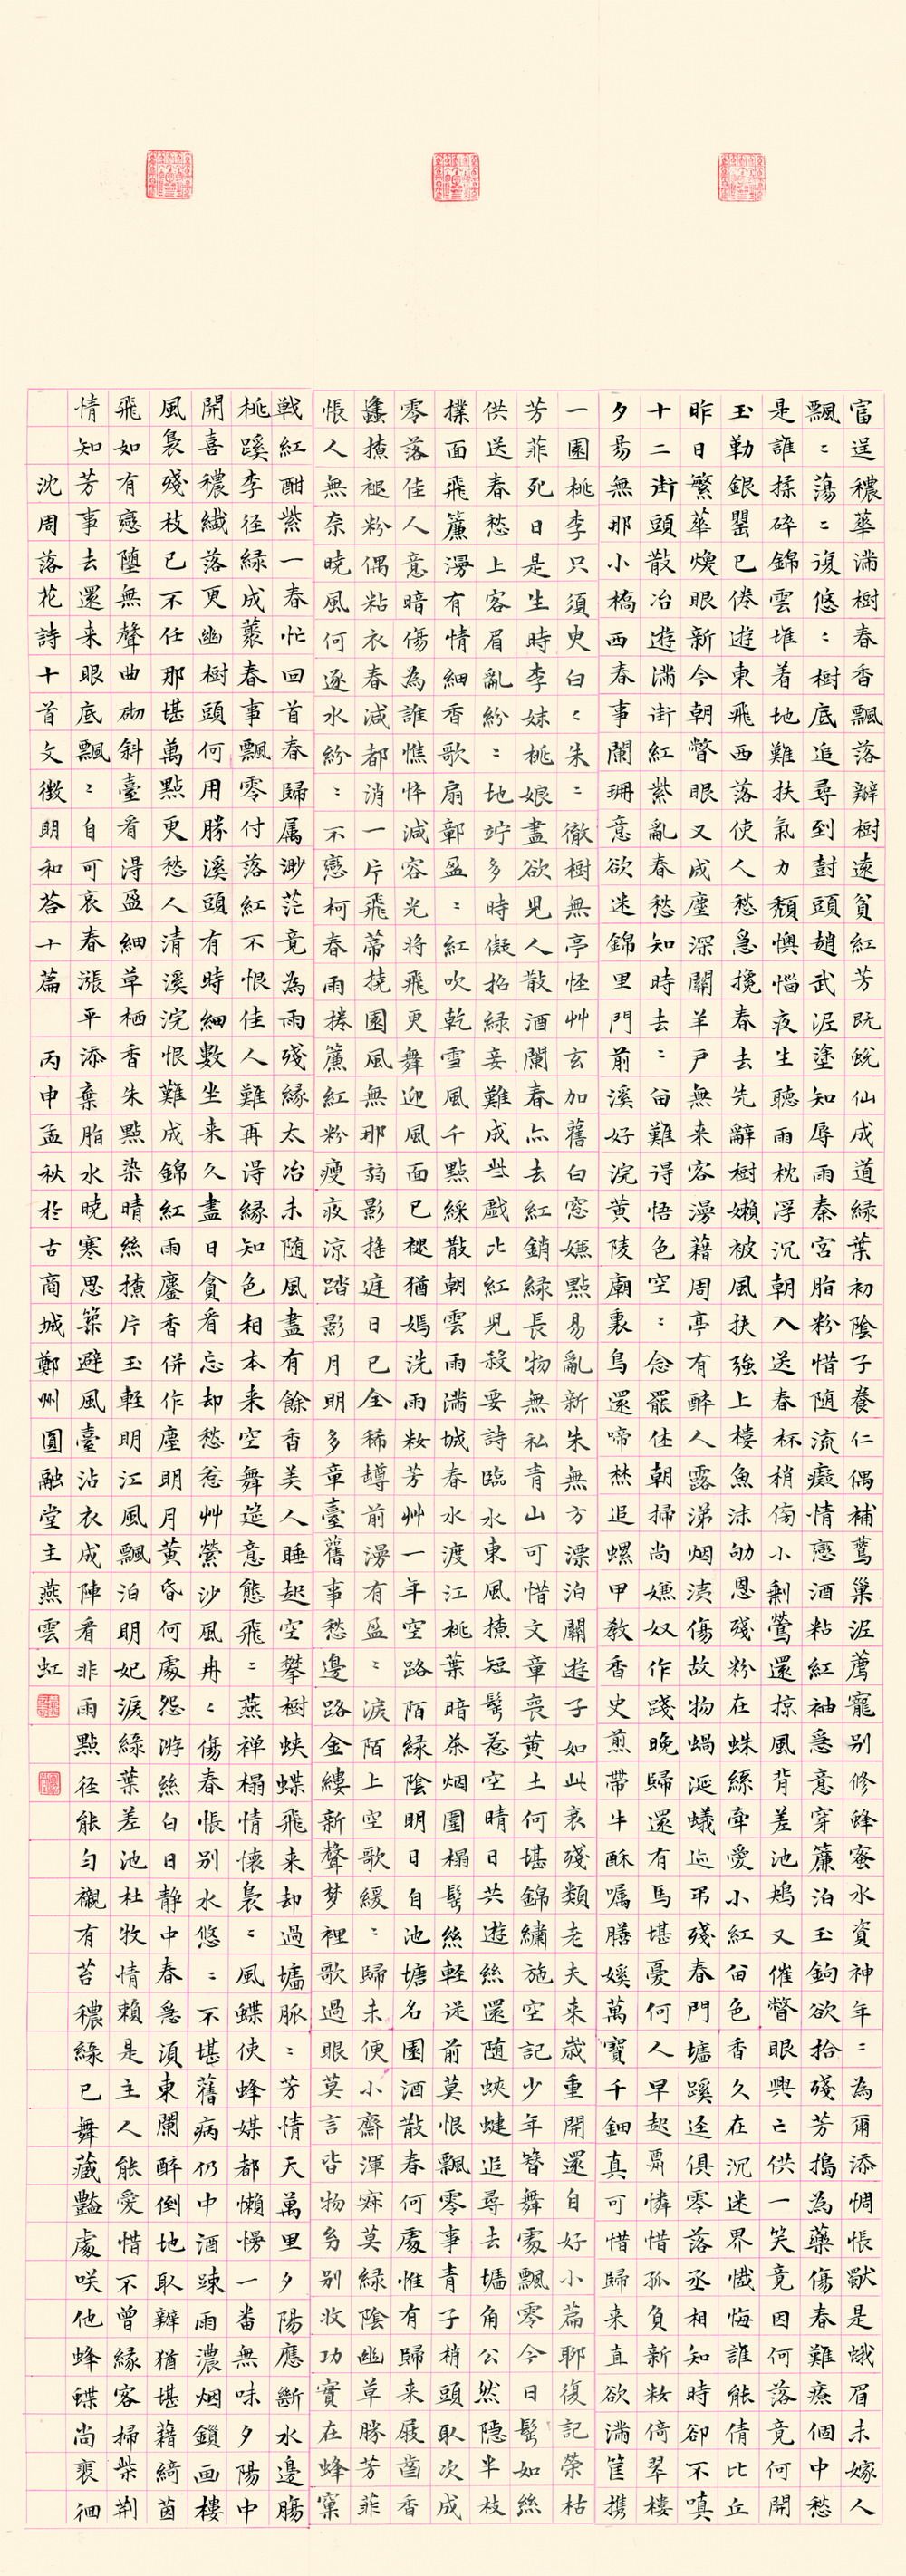 富逞穠華滿樹春香飄落瓣樹還貧紅芳既蛻仙成道綠葉初陰子養仁偶補鶯巢泥薦寵別修蜂蜜水資神年〻為爾添惆悵猒是蛾眉未嫁人
飄〻蕩〻復悠〻樹底追尋到樹頭趙武泥塗知辱雨秦宮脂粉惜隨流癡情戀酒粘紅袖急意穿簾泊玉鉤欲拾殘芳搗為藥傷春難療個中愁
是誰揉碎錦雲堆着地難扶氣力頹懊惱夜生聽雨枕浮沉朝入送春杯梢傍小剩鶯還掠風背差池鴂又催瞥眼興亡供一笑竟因何落竟何開
玉勒銀罌已倦遊東飛西落使人愁急攙春去先辭樹嬾被風扶強上樓魚沫劬恩殘粉在蛛絲牽愛小紅留色香久在沉迷界懺悔誰能倩比丘
昨日繁華煥眼新今朝瞥眼又成塵深關羊戶無來客漫藉周亭有醉人露涕烟洟傷故物蝸涎蟻迹弔殘春門墻蹊徑俱零落丞相知時卻不嗔
十二街頭散冶遊滿街紅紫亂春愁知時去〻留難得悟色空〻念罷休朝掃尚嫌奴作踐晚歸還有馬堪憂何人早起覺憐惜孤負新妝倚翠樓
夕芻無那小橋西春事闌珊意欲迷錦里門前溪好浣黃陵廟裏鳥還啼焚追螺甲教香史煎帶牛酥囑膳媛萬寶千鈿真可惜歸來直欲滿筐携
一園桃李只須臾白〻朱〻徹樹無亭怪艸玄加舊白窓嫌點易亂新朱無方漂泊關遊子如此衰殘類老夫來歲重開還自好小篇聊復記榮枯
芳菲死日是生時李妹桃娘盡欲兒人散酒闌春亦去紅銷綠長物無私青山可惜文章喪黃土何堪錦繡施空記少年簪舞處飄零今日鬢如絲
供送春愁上客眉亂紛〻地竚多時儗招綠妾難成些戲比紅兒殺要詩臨水東風撩短鬢惹空晴日共遊絲還隨蛺蝶追尋去墻角公然隱半枝
撲面飛簾漫有情細香歌扇鄣盈〻紅吹乾雪風千點綵散朝雲雨滿城春水渡江桃葉暗茶烟圍榻鬢絲輕從前莫恨飄零事青子梢頭取次成
零落佳人意暗傷為誰憔悴減容光將飛更舞迎風面已褪猶嫣洗雨妝芳艸一年空路陌綠陰明日自池塘名園酒散春何處惟有歸來屐齒香
蠭撩褪粉偶粘衣春減都消一片飛蒂撓園風無那弱影搖庭日已全稀罇前漫有盈〻淚陌上空歌緩〻歸未便小齋渾寂莫綠陰幽草勝芳菲
悵人無奈曉風何逐水紛〻不戀柯春雨捲簾紅粉瘦夜涼踏影月明多章臺舊事愁邊路金縷新聲梦裡歌過眼莫言皆物芻別收功實在蜂窠
戰紅酣紫一春忙回首春歸属渺茫竟為雨殘緣太冶未隨風盡有餘香美人睡起空攀樹蛺蝶飛來却過墻脈〻芳情天萬里夕陽應斷水邊腸
桃蹊李徑綠成叢春事飄零付落紅不恨佳人難再得緣知色相本來空舞筵意態飛〻燕禪榻情懷裊〻風蝶使蜂媒都懶慢一番無味夕陽中
開喜穠纖落更幽樹頭何用勝溪頭有時細數坐來久盡日貪看忘却愁惹艸縈沙風冉〻傷春悵別水悠〻不堪舊病仍中酒疎雨濃烟鎖画樓
風裊殘枝已不任那堪萬點更愁人清溪浣恨難成錦紅雨塵香併作塵明月黃昏何處怨游絲白日靜中春急須東闌醉倒地取瓣猶堪藉綺茵
飛如有戀墮無聲曲砌斜臺看得盈細草栖香朱點染晴絲撩片玉輕明江風飄泊明妃淚綠葉差池杜牧情賴是主人能愛惜不曾緣客掃柴荆
情知芳事去還來眼底飄〻自可哀春漲平添棄脂水曉寒思築避風臺沾衣成陣看非雨點徑能勻襯有苔穠綠已舞藏豔處咲他蜂蝶尚裵徊
沈周落花詩十首文徵明和答十篇 丙申孟秋於古商城鄭州圓融堂主燕雲虹